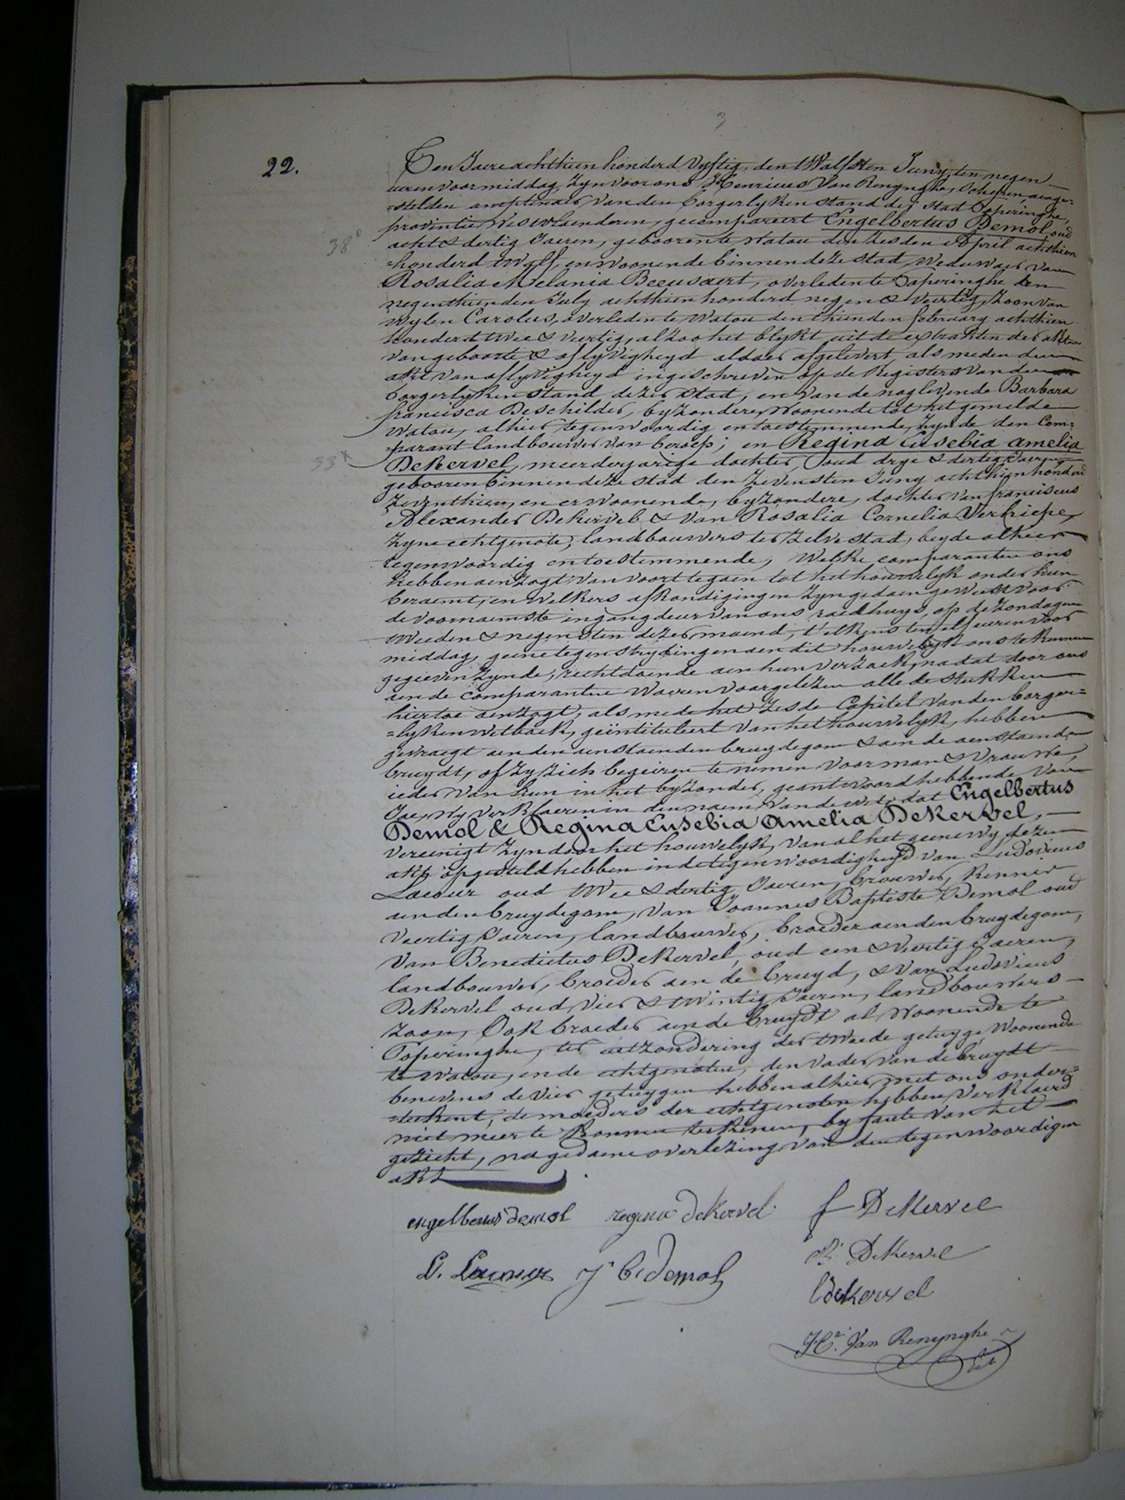 3
22.
Ten Jaere achthien honderd vyftig, den twalfsten Juny, ten negen
uren voormiddag, zyn voor ons Henricus Van Renynghe, Schepen aenge-
stelden amptenaer van den borgerlyken stand der stad Poperinghe,
provintie Westvlaenderen, gecompareert Engelbertus Demol, oud
38°
acht & dertig Jaeren, geboren te Watou den zesden April achthien
honderd twalf, en woonende binnen deze stad, weduwaer van
Rosalia Melania Beeusaert, overleden te Poperinghe den
negenthienden July achthien honderd negen & veertig, zoon van
wylen Carolus, overleden te Watou den thienden february achthien
honderd twee & veertig, alzoo het blykt uit de extrakten der akten
van geboorte & aflyvigheyd aldaer afgelevert, als mede den
akt van aflyvigheyd ingeschreven op de Registers van den
borgerlyken stand dezer stad, en van de nog levende Barbara
francisca Deschilder, byzondere, woonende tot het gemelde
Watou, alhier tegenwoordig en toestemmende, zynde den Com-
parant landbouwer van beroep; en Regina Eusebia Amelia
33
Dekervel, meerderjarige dochter, oud drye & dertig Jaeren,
geboren binnen deze stad den zevensten Juny achthien honderd
zeventhien, en er woonende, byzondere, dochter van franciscus
Alexander Dekervel & van Rosalia Cornelia Verhiepe,
zyne echtgenote, landbouwers ter zelve stad, beyde alhier
tegenwoordig en toestemmende; Welke comparanten ons
hebben aenzogt van voort te gaen tot het houwelyk onder hun
beraemt, en welkers afkondigingen zyn gedaen geweest voor
de voornaemste ingang deur van ons raedhuys, op de zondagen
tweeden & negensten dezer maend, telkens ten elf uren voor
middag, geene tegenstrydingen aen dit houwelyk ons te kennen
gegeven zynde, recht doende aen hun verzoek, na dat door ons
aen de comparanten waeren voorgelezen alle de stukken
hiertoe aenzogt, als mede het zesde Capitel van den borger-
lyken wetboek, geïntituleert Van het houwelyk, hebben
gevraegt aen den aenstaenden bruydegom & aen de aenstaende
bruydt, of zy zich begeiren te nemen voor man & vrouwe,
ieder van hun in het byzonder, geantwoord hebbende van
Jae, wy verklaeren in den naem van de wet, dat Engelbertus
Demol & Regina Eusebia Amelia Dekervel,
vereenigt zyn door het houwelyk, van al het geene wy dezen
akt opgesteld hebben in de tegenwoordigheyd van Ludovicus
Lacour oud twee & dertig Jaeren, brouwer, kenner
aen den bruydegom, van Joannes Baptiste Demol oud
veertig Jaeren, landbouwer, broeder aen den bruydegom,
van Benedictus Dekervel, oud een & veertig Jaeren,
landbouwer, broeder aen de bruyd, & van Ludovicus
Dekervel oud vier & twintig Jaeren, landbouwers-
zoon, Ook broeder aen de bruydt al woonende te
Poperinghe, ter uitzondering der tweede getuyge, woonende
te Watou, en de echtgenoten, den vader van de bruydt
benevens de vier getuygen hebben alhier met ons onder-
teekent, de moeders der echtgenoten hebben verklaerd
niet meer te konnen teekenen, by faute van het
gezicht, na gedaene overlezing van den tegenwoordigen
akt
engelbertus demol regina dekervel f Dekervel
L. Lacour Jn Bte demol Bt Dekervel
l dekervel
Hri Van Renynghe